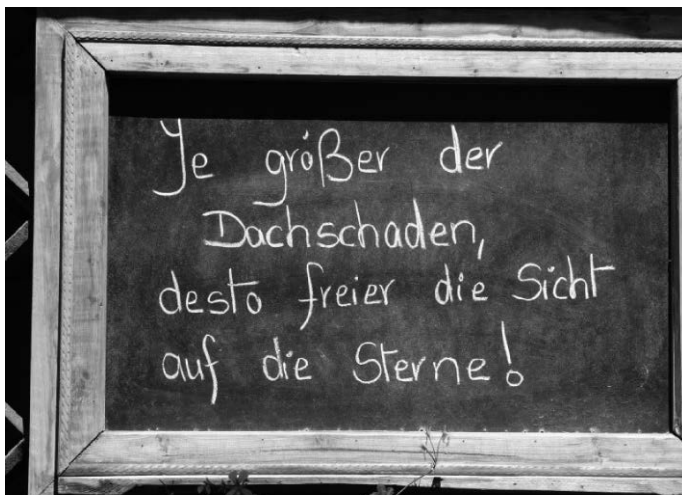 Je größer der
Dachschaden,
desto freier die Sicht
auf die Sterne!